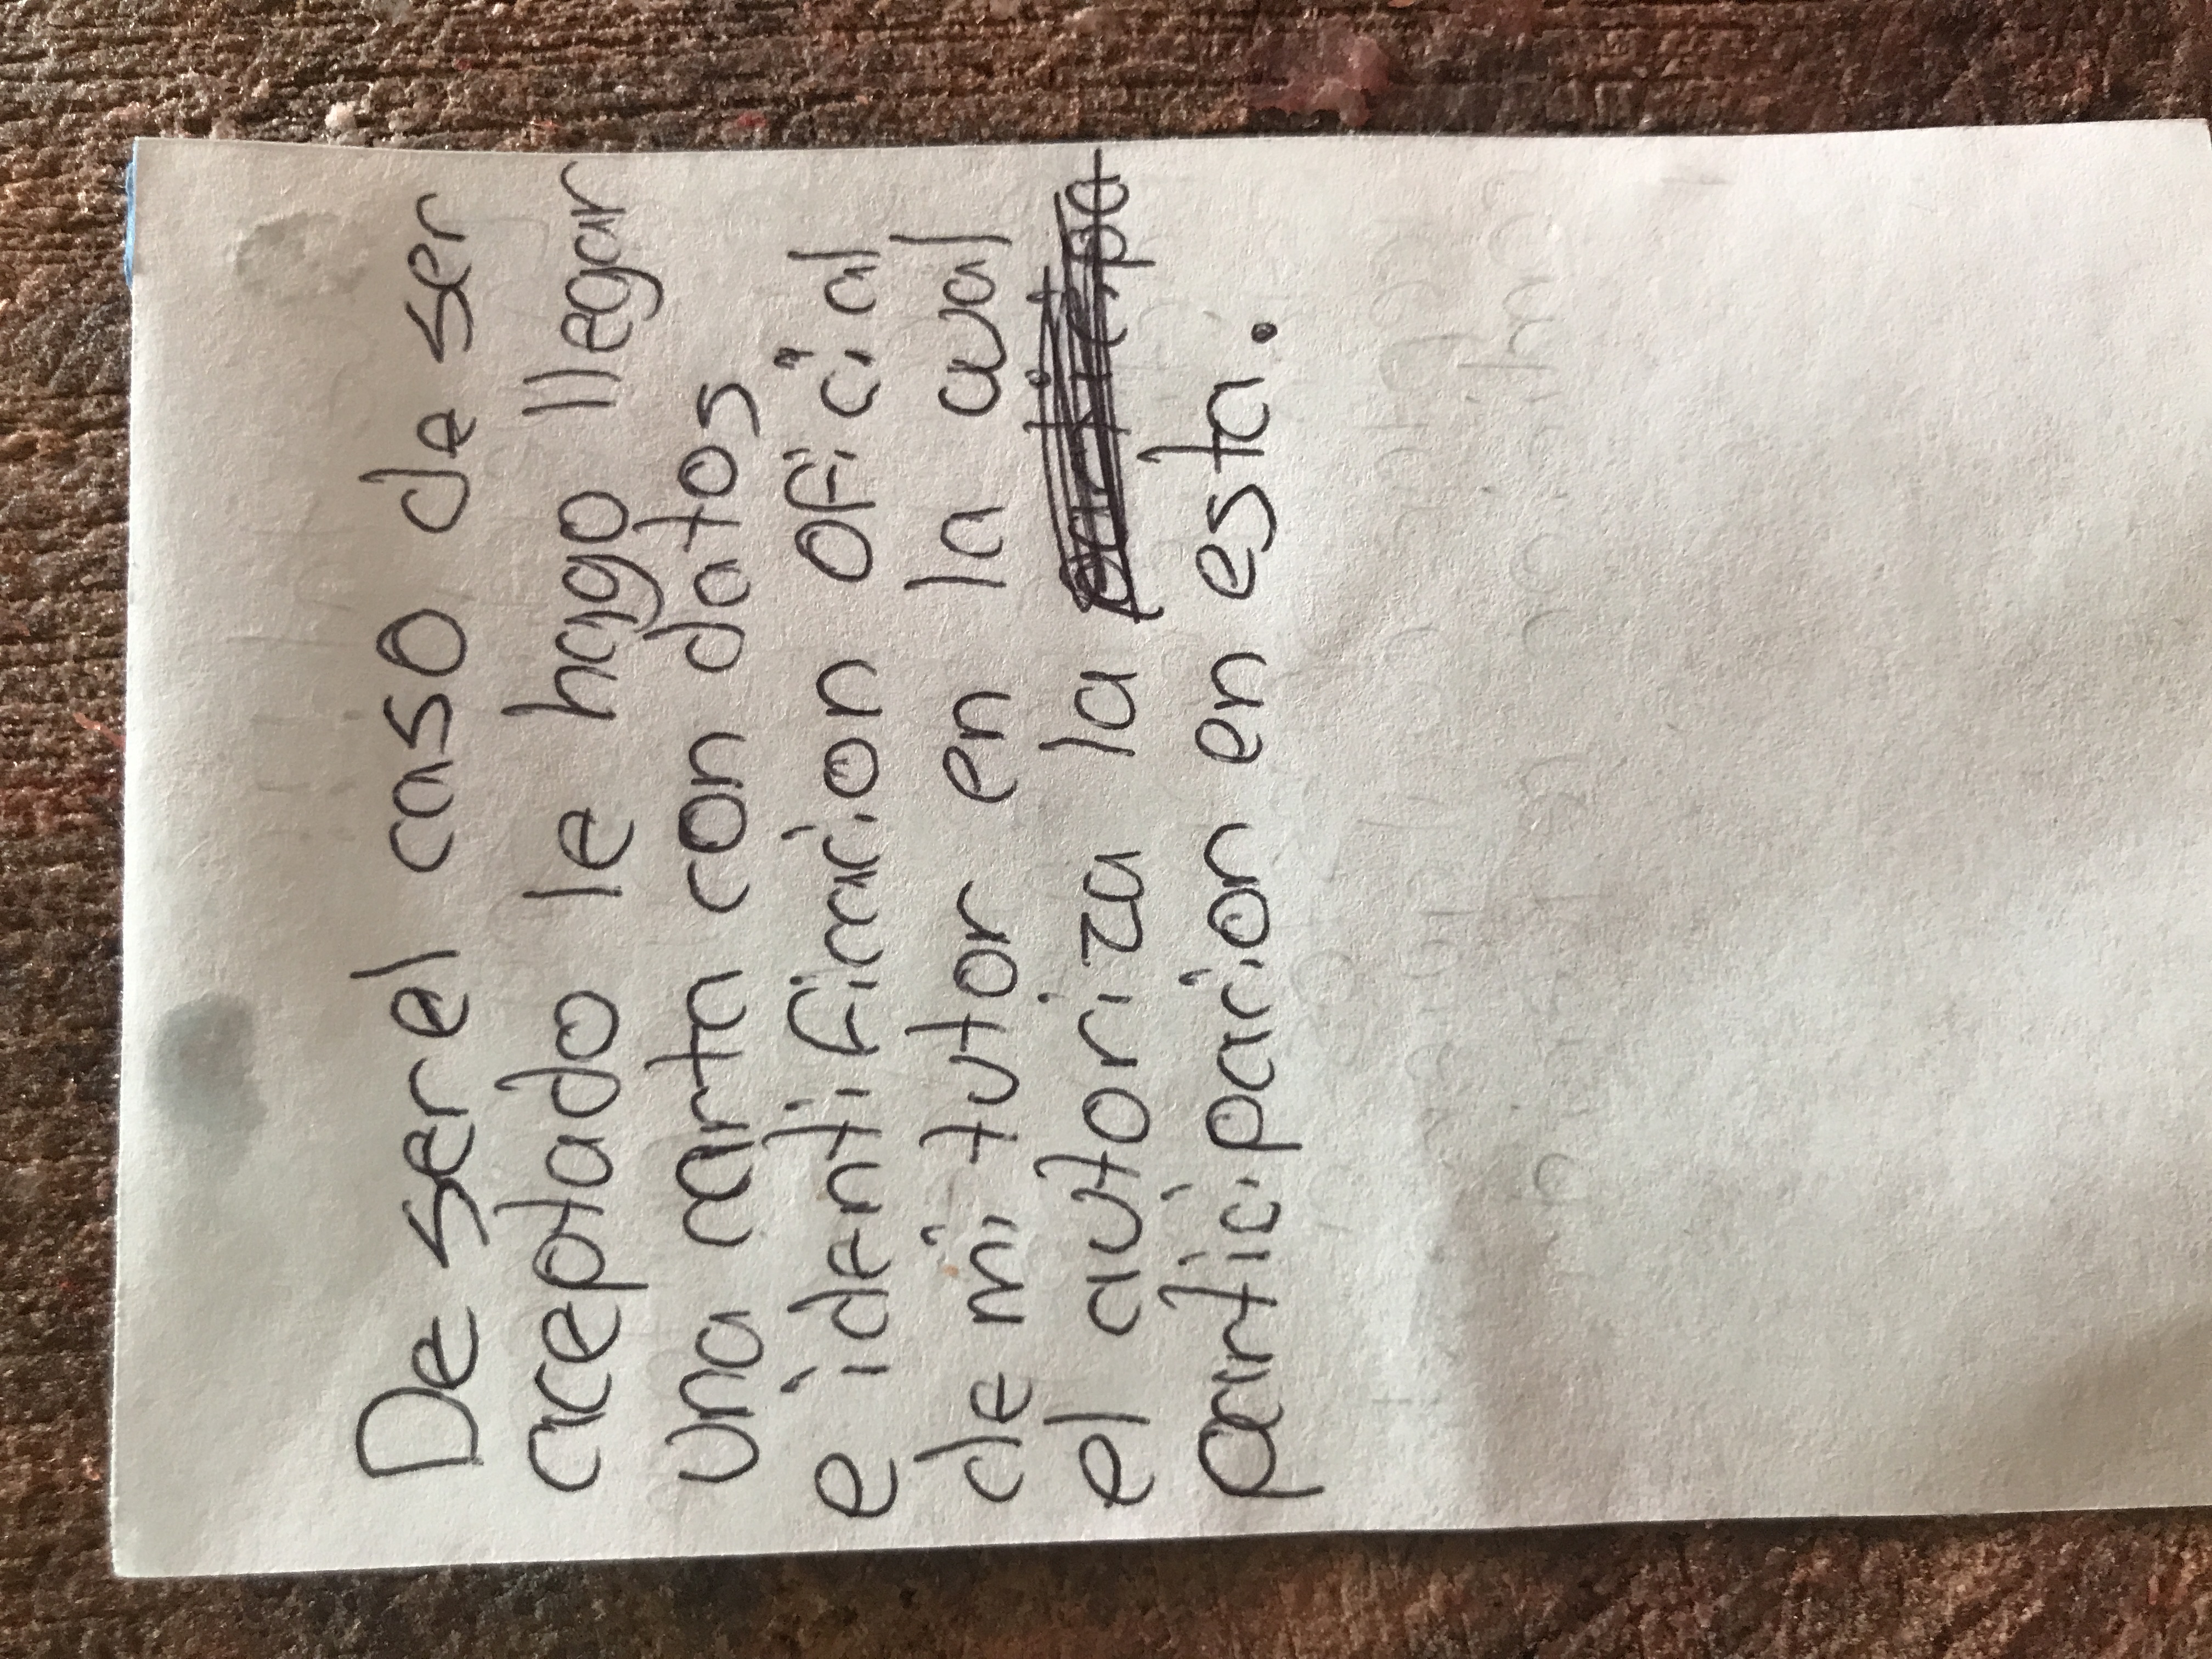 De ser el caso de ser
aceptado le hago llegar
una carta con datos
e identificacion oficial
de mi tutor en la cual
el autoriza la
participacion en esta.